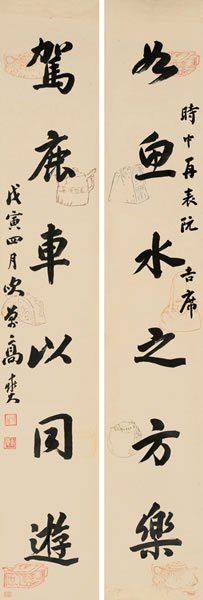 如魚水之方樂
時中再表阮 吉席
駕鹿車以同遊
戊寅四月吹萬高燮